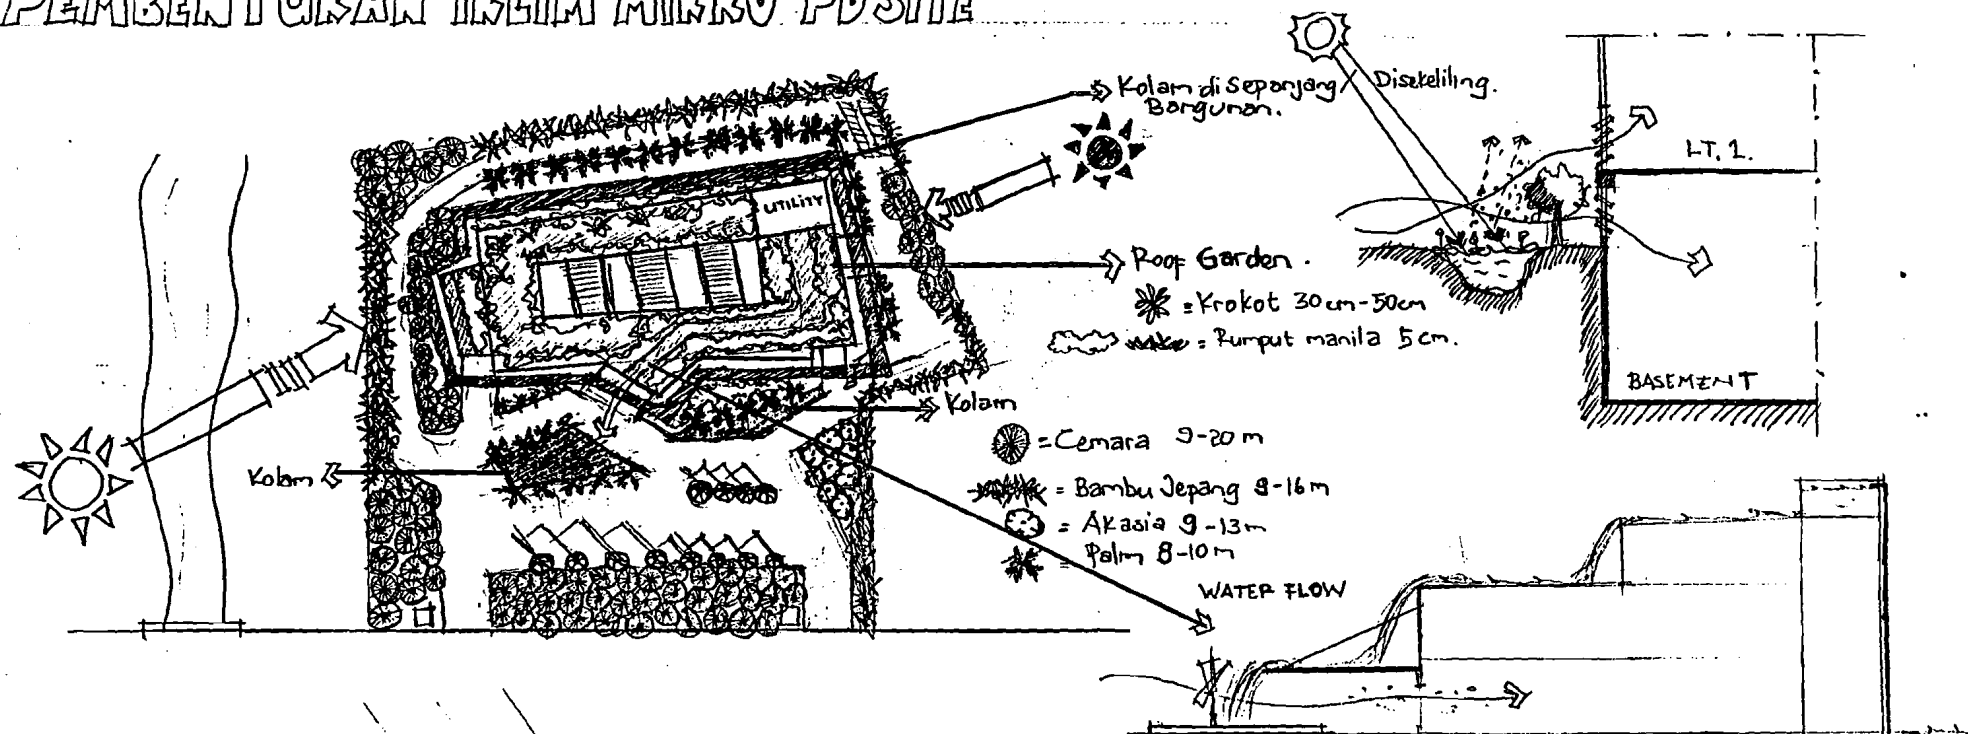 PEMBENTUKAN IKLIM MIKRO PD SITE
Kolam di Sepanjang / Disekeliling.
Bangunan.
UTILITY
LT. 1.
Roof Garden.
= Krokot 30 cm-50cm
= Rumput manila 5 cm.
BASEMENT
Kolam
= Cemara 9-20 m
Kolam
= Bambu Jepang 8-16 m
= Akasia 9-13 m
= Palm 8-10 m
WATER FLOW